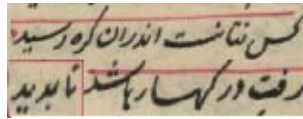 کس نتانست اندران کره رسید
رفت در کهسار باشد نابدید